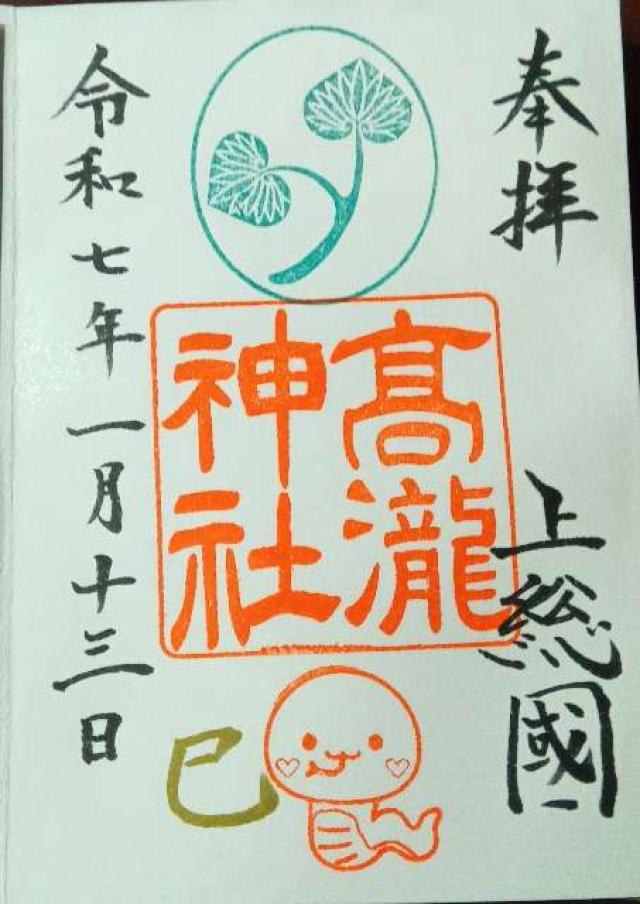 奉拝
上総國
髙瀧
神社
巳
令和七年一月十三日